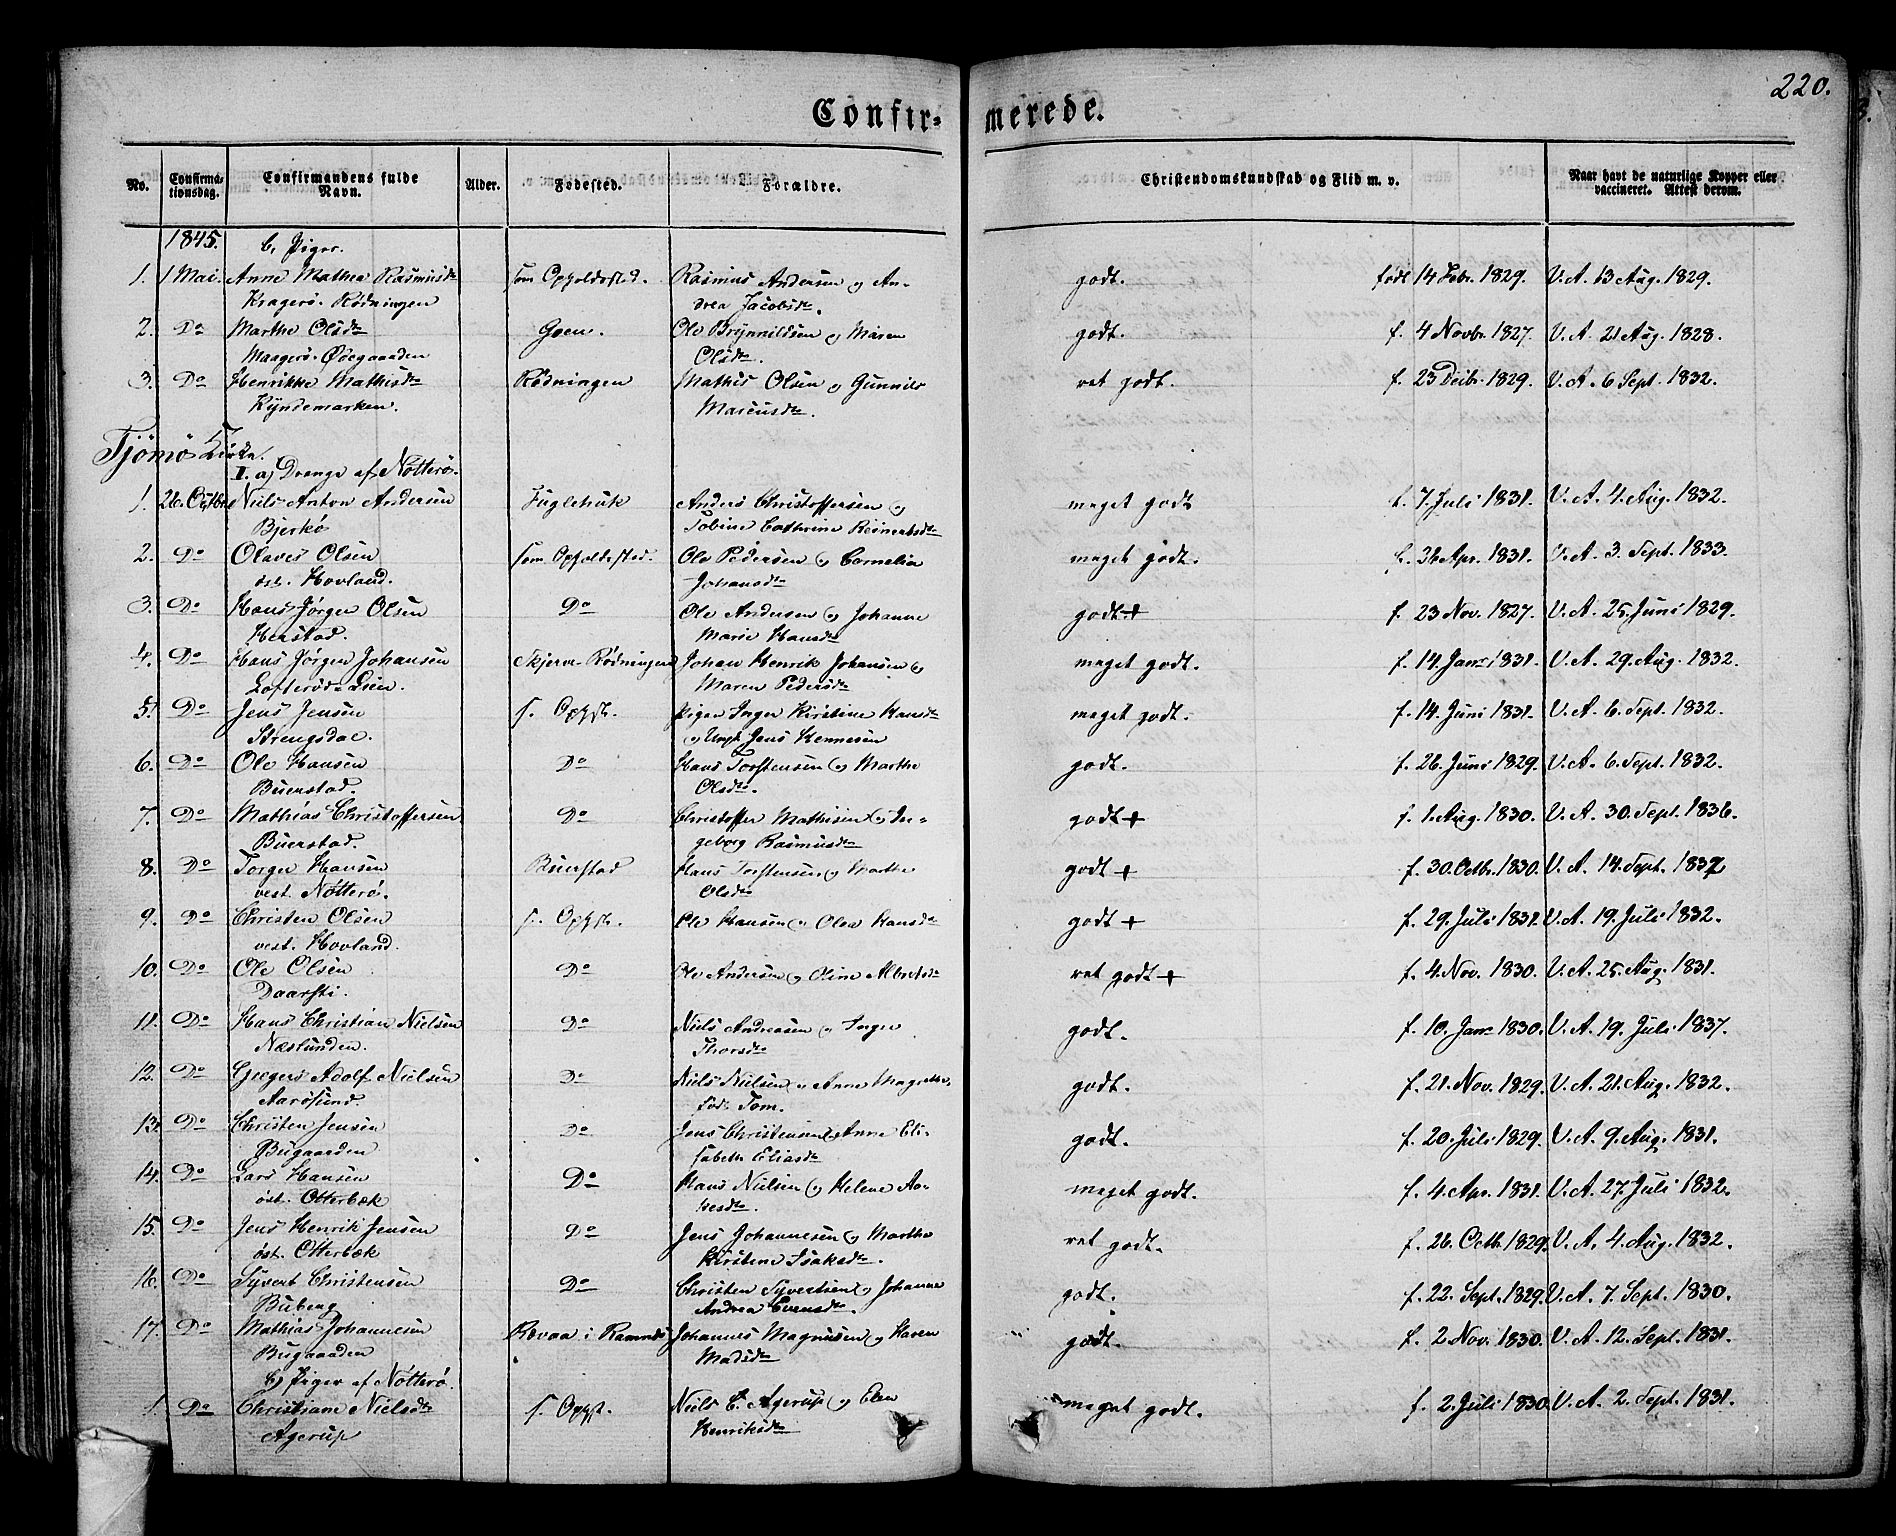 220.
Confir-
merede.
No.
Confirma-
tionsdag.
Confirmandens fulde
Navn.
Alder.
Fødested.
Forældre.
Christendomskundskab og Flid m. v.
Naar havt de naturlige Kopper eller
vaccineret. Attest derom.
1845. b, Piger.
1. 1 Mai. Anne Mathea Rasmusdtr som Opholdssted. Rasmus Andersen og An- godt. født 14 Febr. 1829. V. A. 13 Aug. 1829.
Kragerö. Rødningen drea Jacobsdtr.
2. Do Marthe Olsdtr Goen. Ole Brynnildsen og Maren godt. f. 4 Novbr. 1827. V. A. 21 Aug. 1828.
Maagerö. Ødegaarden Olsdtr.
3. Do Henrikke Mathisdtr Rødningen Mathis Olsen og Gunnild ret godt. f. 23 Decbr. 1829. V. A. 6 Sept. 1832.
Kyndemarken. Marcusdtr.
Tjömö Kirke.
I. a) Drenge af Nötterö.
1. 26. Octbr. Niels Anton Andersen Fuglehuk Anders Christoffersen og meget godt f. 7. Juli 1831. V. A. 4. Aug. 1832.
Bjerkö Tobine Cathrine Reinertsdtr
2. Do Olaves Olsen som Opholdssted. Ole Pedersen og Cornelia meget godt. f. Apr. 1831. V. A. 3. Sept. 1833.
öst. Hovland. Johansdtr
3. Do Hans Jørgen Olsen Do Ole Andersen og Johanne godt + f. 23 Nov. 1827. V. A. 25. Juni 1829.
Herstad. Marie Hansdtr
4. Do Hans Jørgen Johansen Skjerve-Rødningen Johan Henrik Johansen og meget godt. f. 14. Janr 1831. V. A. 29. Aug. 1832.
Lofteröds Eien. Maren Pedersdtr
5. Do Jens Jensen s. Ophst. Pigen Inger Kirstine Hansdtr meget godt. f. 14. Juni 1831. V. A. 6. Sept. 1832.
Strengsdal. og Ungk. Jens Hennesen
6. Do Ole Hansen Do Hans Torstensen og Marthe godt. f. 26. Juni 1829. V. A. 6. Sept. 1832.
Buerstad. Olsdtr.
7. Do Mathias Christoffersen Do Christoffer Mathisen og In- godt + f. 1. Aug. 1830. V. A. 30. Sept. 1836.
Buerstad. geborg Rasmusdtr
8. Do Torger Hansen Buerstad Hans Torstensen og Marthe godt + f. 30. Octbr. 1830. V. A. 14. Sept. 1832
vest. Nötterö. Olsdtr
9. Do Christen Olsen s. Ophst. Ole Hansen og Olea Hansdtr godt + f. 29. Juli 1831. V. A. 19. Juli 1832.
vest. Hovland.
10. Do Ole Olsen Do Ole Andersen og Oline Albretsdtr ret godt + f. 4. Nov. 1830. V. A. 25. Aug. 1831.
Daarsti.
11. Do Hans Christian Nielsen Do Niels Andreasen og Inger godt. f. 10. Janr 1830. V. A. 19. Juli 1837.
Næslunden. Thorsdtr
12. Do Gregers Adolf Nielsen Do Niels Nielsen og Anne Magrethe, godt. f. 21. Nov. 1829. V. A. 21. Aug. 1832.
Aarösund. föd: Tom.
13. Do Christen Jensen Do Jens Christensen og Anne Eli- godt. f. 20. Juli 1829. V. A. 9. Aug. 1831.
Bugaarden sabeth Eliasdtr
14. Do Lars Hansen Do Hans Nielsen og Helene An- meget godt. f. 4. Apr. 1831. V. A. 27. Juli 1832.
öst. Otterbæk
15. Do Jens Henrik Jensen Do Jens Johannesen og Marthe ret godt. f. 26. Octbr 1829. V. A. 4. Aug. 1832.
öst. Otterbæk Kirstine Isaksdtr.
16. Do Syvert Christensen Do Christen Syvertsen og Johanne godt. f. 22. Sept. 1829. V. A. 7. Sept. 1830.
Buberg Andrea Evensdtr.
17. Do Mathias Johannesen Revaa i Ramnæs Johannes Magnusen og Karen godt. f. 2. Nov. 1830. V. A. 12. Sept. 1831.
Bugaarden Madsdtr
b) Piger af Nötterö.
1. Do Christiane Nielsdtr s. Ophst. Niels C. Agerup og Elen meget godt. f. 2. Juli 1830. V. A. 2. Sept. 1831.
Agerup Henriksdtr